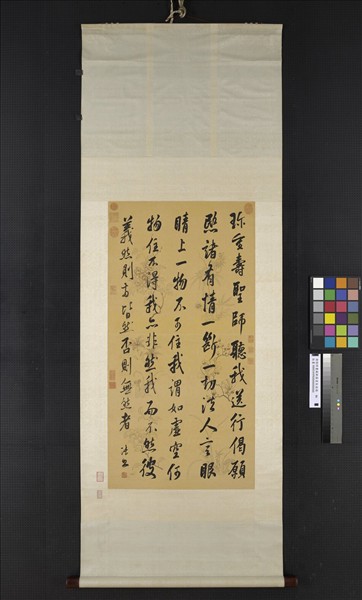 弥重壽聖師聽我送行偈願
愍諸有情一斷一切洪人言眼
睛上一物不可住我謂如虛空何
物住不得我亦非然我而不然彼
義然則方皆然否則無然者